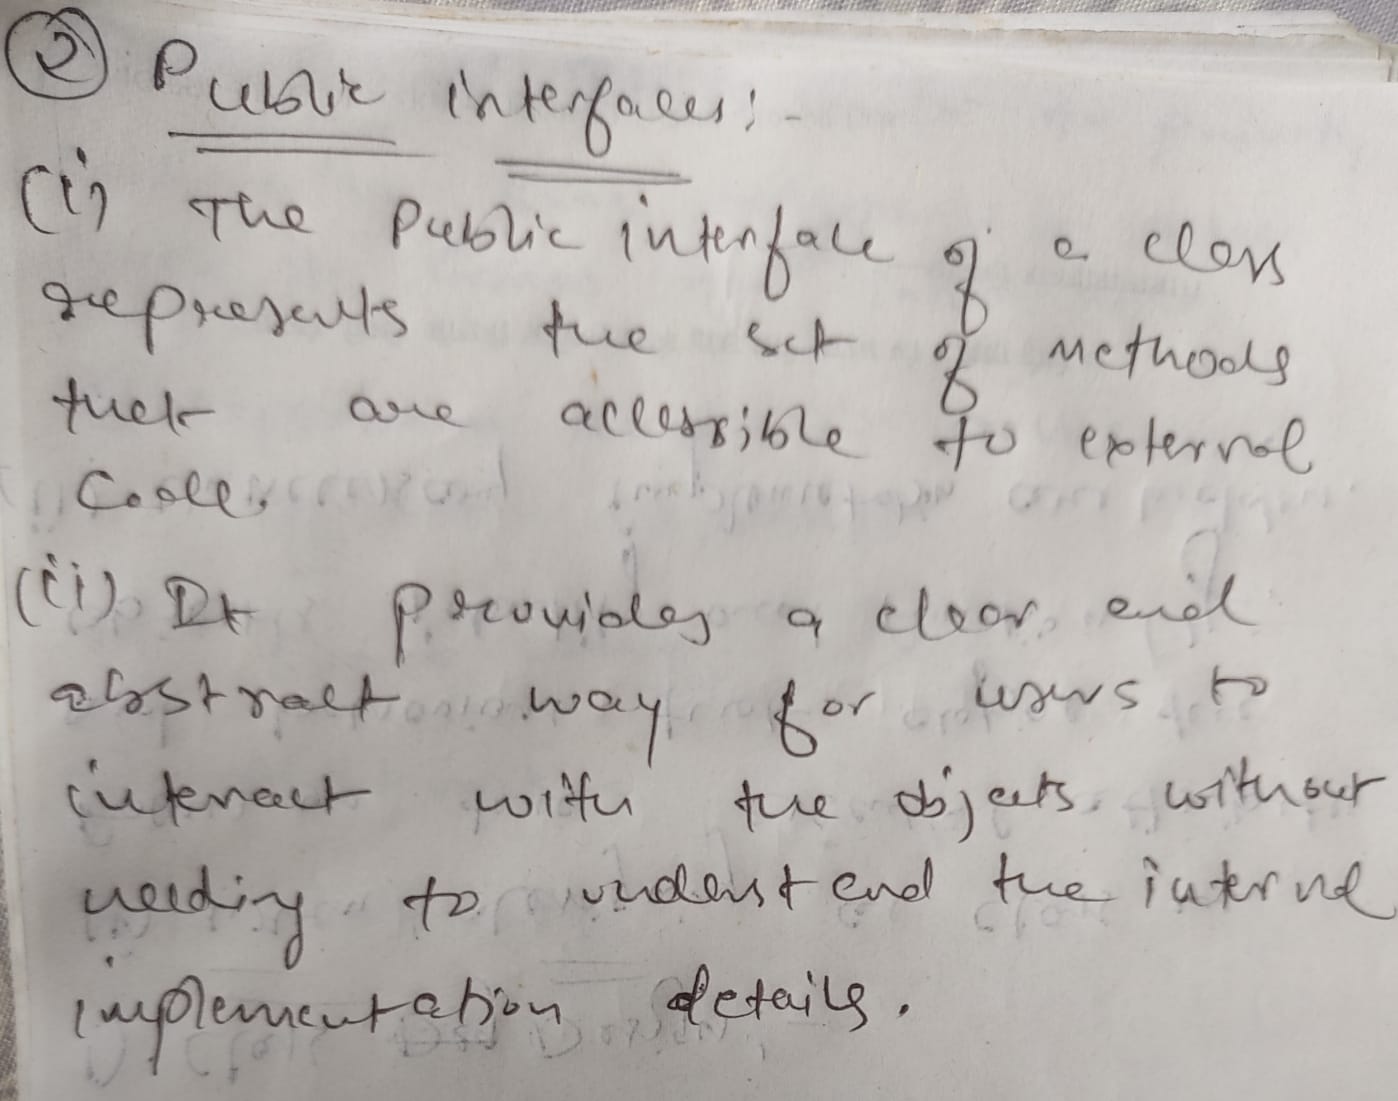 ② Public interfaces:-
(i) The Public interface of a class
represents the set of methods
that are accessible to external
Code.
(ii) It provides a clear and
abstract way for users to
interact with the objects without
needing to understand the internal
implementation details.